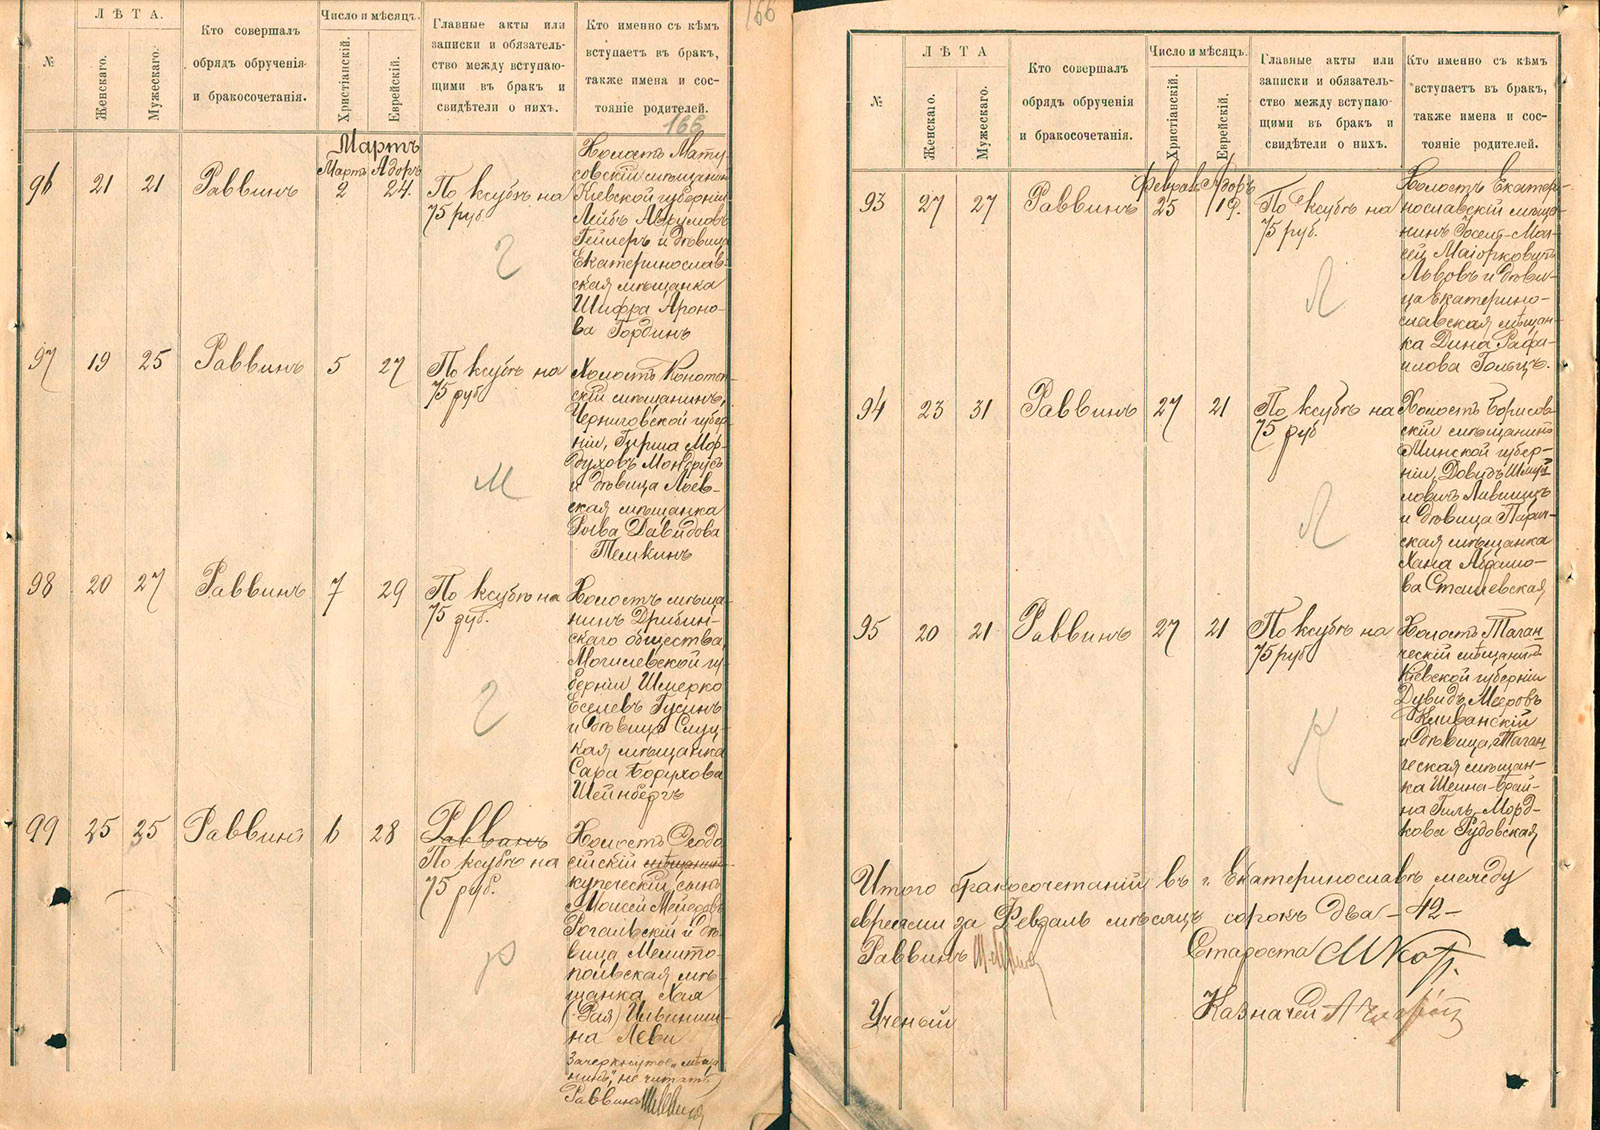 166
ЛѢТА.
Число и мѣсяцъ.
№
Женскаго.
Мужескаго.
Кто совершалъ
обрядъ обрученія
и бракосочетанія.
Христіанскій.
Еврейскій.
Главные акты или
записки и обязатель-
ство между вступаю-
щими въ бракъ и
свидѣтели о нихъ.
Кто именно съ кѣмъ
вступаетъ въ бракъ,
также имена и сос-
тояніе родителей.
166
Мартъ
96 21 21 Раввинъ
Мартъ Адоръ
2 24.
По ксубѣ на
75 руб.
Г
Холостъ Мату-
совскій мѣщанин
Кіевской губерніи
Лейбъ Аврумовъ
Гейлеръ и дѣвица
Екатеринослав-
ская мѣщанка
Шифра Ароно-
ва Гординъ
97 19 25 Раввинъ 5 27
По ксубѣ на
75 руб
М
Холостъ Конотоп-
скій мѣщанинъ,
Черниговской губер-
ніи, Гирша Мор-
духовъ
и дѣвица
ская мѣщанка
Давидова
Темкинъ
98 20 27 Раввинъ 7 29
По ксубѣ на
75 руб.
Г
Холостъ мѣща-
нинъ Дрибин-
скаго общества,
Могилевской гу-
берніи Шмерко
Еселевъ Гусинъ
и дѣвица Слуц-
кая мѣщанка
Сара Борухова
Шейнбергъ
99 25 25 Раввинъ 6 28
Раввинъ
По ксубѣ на
75 руб.
Р
Холостъ Ѳеодо-
сійскій мѣщанинъ
купеческій сынъ
Моисей Мейеровъ
Рогальскій и дѣ-
вица Мелито-
польская мѣ-
щанка Хая
(Рая)
на Леви
Зачеркнутое „мѣща-
нинъ“ не читать
Раввинъ
ЛѢТА
Число и мѣсяцъ.
№
Женскаго.
Мужескаго.
Кто совершалъ
обрядъ обрученія
и бракосочетанія.
Христіанскій.
Еврейскій.
Главные акты или
записки и обязатель-
ство между вступаю-
щими въ бракъ и
свидѣтели о нихъ.
Кто именно съ кѣмъ
вступаетъ въ бракъ,
также имена и сос-
тояніе родителей.
93 27 27 Раввинъ
Феврал. Адоръ
25 19.
По ксубѣ на
75 руб.
Л
Холостъ Екатери-
нославскій мѣща-
нинъ Іосель-Мов-
сей Маіорковичъ
Львовъ и дѣви-
ца Екатерино-
славская мѣщан-
ка Дина Рафа-
илова Гольцъ.
94 23 31 Раввинъ 27 21
По ксубѣ на
75 руб
Л
Холостъ Борисов-
скій мѣщанинъ
Минской губер-
ніи, Довидъ Шму-
ловичъ Лившицъ
и дѣвица Парич-
ская мѣщанка
Хана Абрамо-
ва Сташевская
95 20 21 Раввинъ 27 21
По ксубѣ на
75 руб
К
Холостъ Таган-
ческій мѣщанинъ
Кіевской губерніи
Дувидъ Мееровъ
Кливанскій
и дѣвица, Таган-
ческая мѣщан-
ка Шейна-Брай-
на Гиль-Морд-
кова Рудовская
Итого бракосочетаній въ г. Екатеринославѣ между
евреями за Февраль мѣсяцъ сорокъ два – 42 –
Раввинъ
Староста
Ученый
Казначей